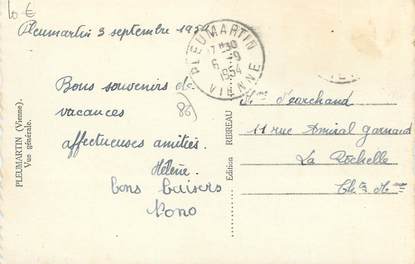 10 €
Pleumartin 3 septembre 195
PLEUMARTIN
17 H 30
6 - 9
1954
VIENNE
Bons souvenirs de
vacances
affectueuses amitiés.
Hélène
bons baisers
Nono
86
Mme Marchand
11 rue Amiral Garnaud
La Rochelle
Chte Mme
PLEUMARTIN (Vienne).
Vue générale.
Edition RIBREAU